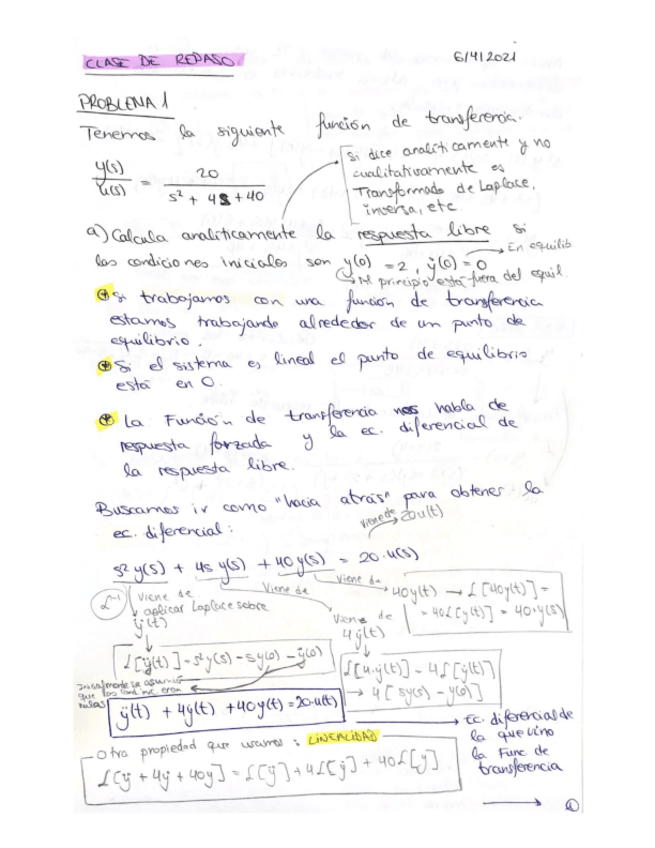 CLASE DE REPASO
6/4/2021
PROBLEMA 1
Tenemos la siguiente función de transferencia.
y(s)/u(s) = 20/(s² + 4s + 40)
Si dice analíticamente y no
cualitativamente es
Transformada de Laplace,
inversa, etc
a) Calcula analíticamente la respuesta libre si
las condiciones iniciales son y(0) = 2, ẏ(0) = 0
→ En equilib
→ Al principio está fuera del equil.
* Si trabajamos con una función de transferencia
estamos trabajando alrededor de un punto de
equilibrio.
* Si el sistema es lineal el punto de equilibrio
está en 0.
* La Función de transferencia nos habla de
respuesta forzada y la ec. diferencial de
la respuesta libre.
Buscamos ir como "hacia atrás" para obtener la
ec. diferencial:
viene de → 20u(t)
s²y(s) + 4s y(s) + 40y(s) = 20·u(s)
ℒ⁻¹
Viene de
aplicar Laplace sobre
ÿ(t)
Viene de
Viene de
4ẏ(t)
Viene de
40y(t) → ℒ[40y(t)] =
= 40ℒ[y(t)] = 40·y(s)
ℒ[ÿ(t)] = s²y(s) - sy(0) - ẏ(0)
ℒ[4·ẏ(t)] = 4ℒ[ẏ(t)]
→ 4[sy(s) - y(0)]
se asumió
que las cond inic. eran
nulas
ÿ(t) + 4ẏ(t) + 40y(t) = 20·u(t)
→ Ec. diferencial de
la que vino
la Func de
transferencia
Otra propiedad que usamos: LINEALIDAD
ℒ[ÿ + 4ẏ + 40y] = ℒ[ÿ] + 4ℒ[ẏ] + 40ℒ[y]
→ 1